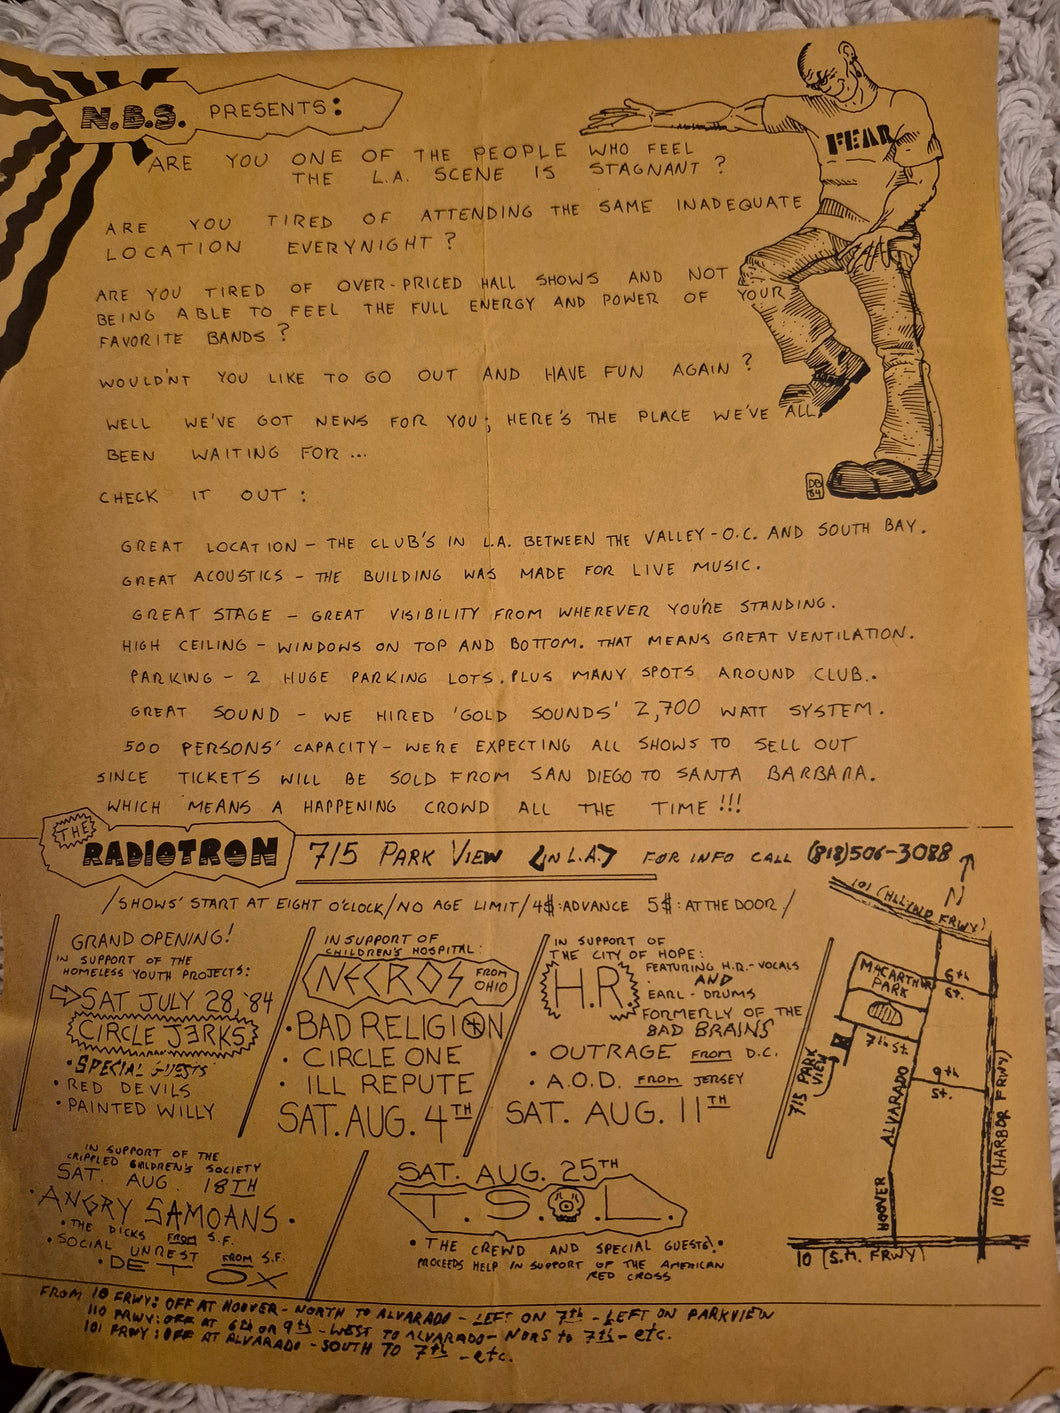 N.B.S. PRESENTS:
FEAR
ARE YOU ONE OF THE PEOPLE WHO FEEL
THE L.A. SCENE IS STAGNANT?
ARE YOU TIRED OF ATTENDING THE SAME INADEQUATE
LOCATION EVERYNIGHT?
ARE YOU TIRED OF OVER-PRICED HALL SHOWS AND NOT
BEING ABLE TO FEEL THE FULL ENERGY AND POWER OF YOUR
FAVORITE BANDS?
WOULD'NT YOU LIKE TO GO OUT AND HAVE FUN AGAIN?
WELL WE'VE GOT NEWS FOR YOU; HERE'S THE PLACE WE'VE ALL
BEEN WAITING FOR...
CHECK IT OUT:
DB
84
GREAT LOCATION - THE CLUB'S IN L.A. BETWEEN THE VALLEY - O.C. AND SOUTH BAY.
GREAT ACOUSTICS - THE BUILDING WAS MADE FOR LIVE MUSIC.
GREAT STAGE - GREAT VISIBILITY FROM WHEREVER YOU'RE STANDING.
HIGH CEILING - WINDOWS ON TOP AND BOTTOM. THAT MEANS GREAT VENTILATION.
PARKING - 2 HUGE PARKING LOTS. PLUS MANY SPOTS AROUND CLUB..
GREAT SOUND - WE HIRED 'GOLD SOUNDS' 2,700 WATT SYSTEM.
500 PERSONS' CAPACITY - WE'RE EXPECTING ALL SHOWS TO SELL OUT
SINCE TICKETS WILL BE SOLD FROM SAN DIEGO TO SANTA BARBARA.
WHICH MEANS A HAPPENING CROWD ALL THE TIME!!!
THE RADIOTRON 715 PARK VIEW (IN L.A.) FOR INFO CALL (818)506-3088
/SHOWS' START AT EIGHT O'CLOCK/NO AGE LIMIT/4$:ADVANCE 5$:AT THE DOOR/
GRAND OPENING!
IN SUPPORT OF THE
HOMELESS YOUTH PROJECTS:
SAT JULY 28, '84
CIRCLE JERKS
• SPECIAL GUESTS
• RED DEVILS
• PAINTED WILLY
IN SUPPORT OF
CHILDREN'S HOSPITAL:
NECROS FROM OHIO
• BAD RELIGION
• CIRCLE ONE
• ILL REPUTE
SAT. AUG. 4TH
IN SUPPORT OF
THE CITY OF HOPE:
H.R.
FEATURING H.R. - VOCALS
AND
EARL - DRUMS
FORMERLY OF THE
BAD BRAINS
• OUTRAGE FROM D.C.
• A.O.D. FROM JERSEY
SAT. AUG. 11TH
N
101 (HLLYND FRWY)
MACARTHUR PARK
6th St.
7th St.
9th St.
715 PARK VIEW
ALVARADO
HOOVER
110 (HARBOR FRWY)
10 (S.M. FRWY)
IN SUPPORT OF THE
CRIPPLED CHILDREN'S SOCIETY
SAT. AUG. 18TH
• ANGRY SAMOANS •
• THE DICKS FROM S.F.
• SOCIAL UNREST FROM S.F.
• DET OX
SAT. AUG. 25TH
T.S.O.L.
• THE CREWD AND SPECIAL GUESTS! •
PROCEEDS HELP IN SUPPORT OF THE AMERICAN
RED CROSS
FROM 10 FRWY: OFF AT HOOVER - NORTH TO ALVARADO - LEFT ON 7th - LEFT ON PARKVIEW
110 FRWY: OFF AT 6th OR 9th - WEST TO ALVARADO - NORS to 7th - etc.
101 FRWY: OFF AT ALVARADO - SOUTH TO 7th - etc.